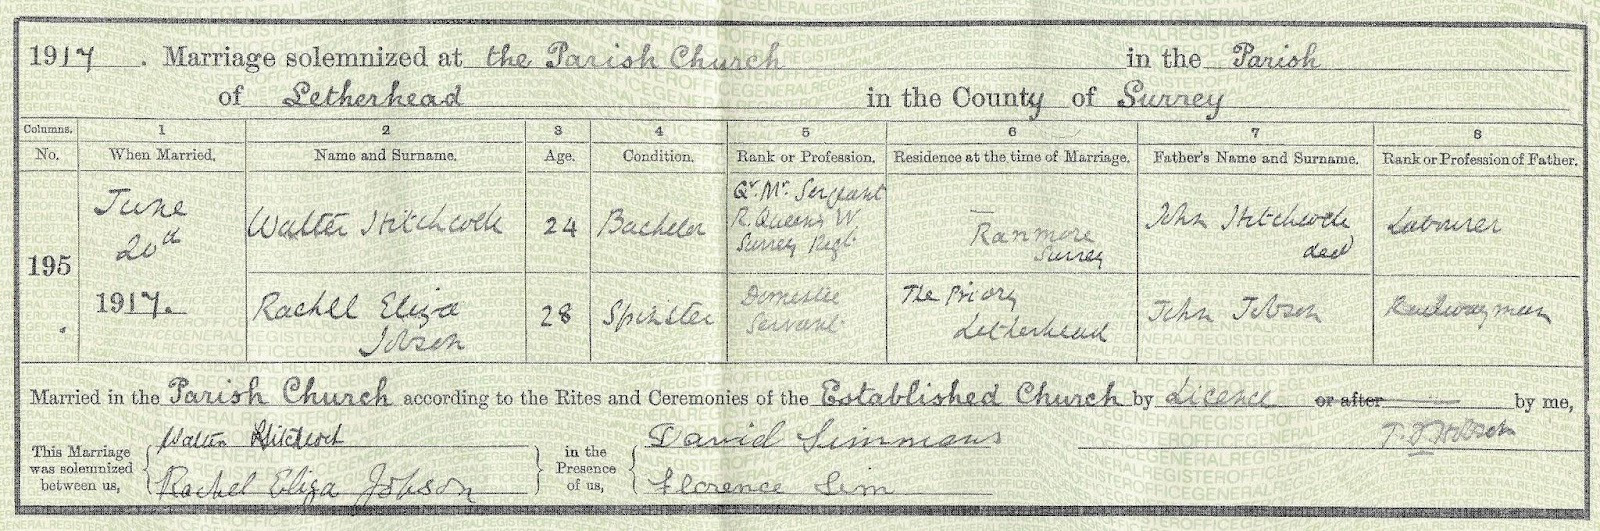 1917. Marriage solemnized at the Parish Church in the Parish
of Letherhead in the County of Surrey
Columns. 1 2 3 4 5 6 7 8
No. When Married. Name and Surname. Age. Condition. Rank or Profession. Residence at the time of Marriage. Father's Name and Surname. Rank or Profession of Father.
195
June
20th
1917.
Walter Hitchcock
24
Bachelor
Qr. Mr. Sergeant
R. Queens W
Surrey Regt
Ranmore
Surrey
John Hitchcock
decd
Labourer
Rachel Eliza
Jobson
28
Spinster
Domestic
Servant
The Priory
Letherhead
John Jobson
Railwayman
Married in the Parish Church according to the Rites and Ceremonies of the Established Church by Licence or after by me,
This Marriage
was solemnized
between us,
Walter Hitchcock
Rachel Eliza Jobson
in the
Presence
of us,
David Simmans
Florence Sim